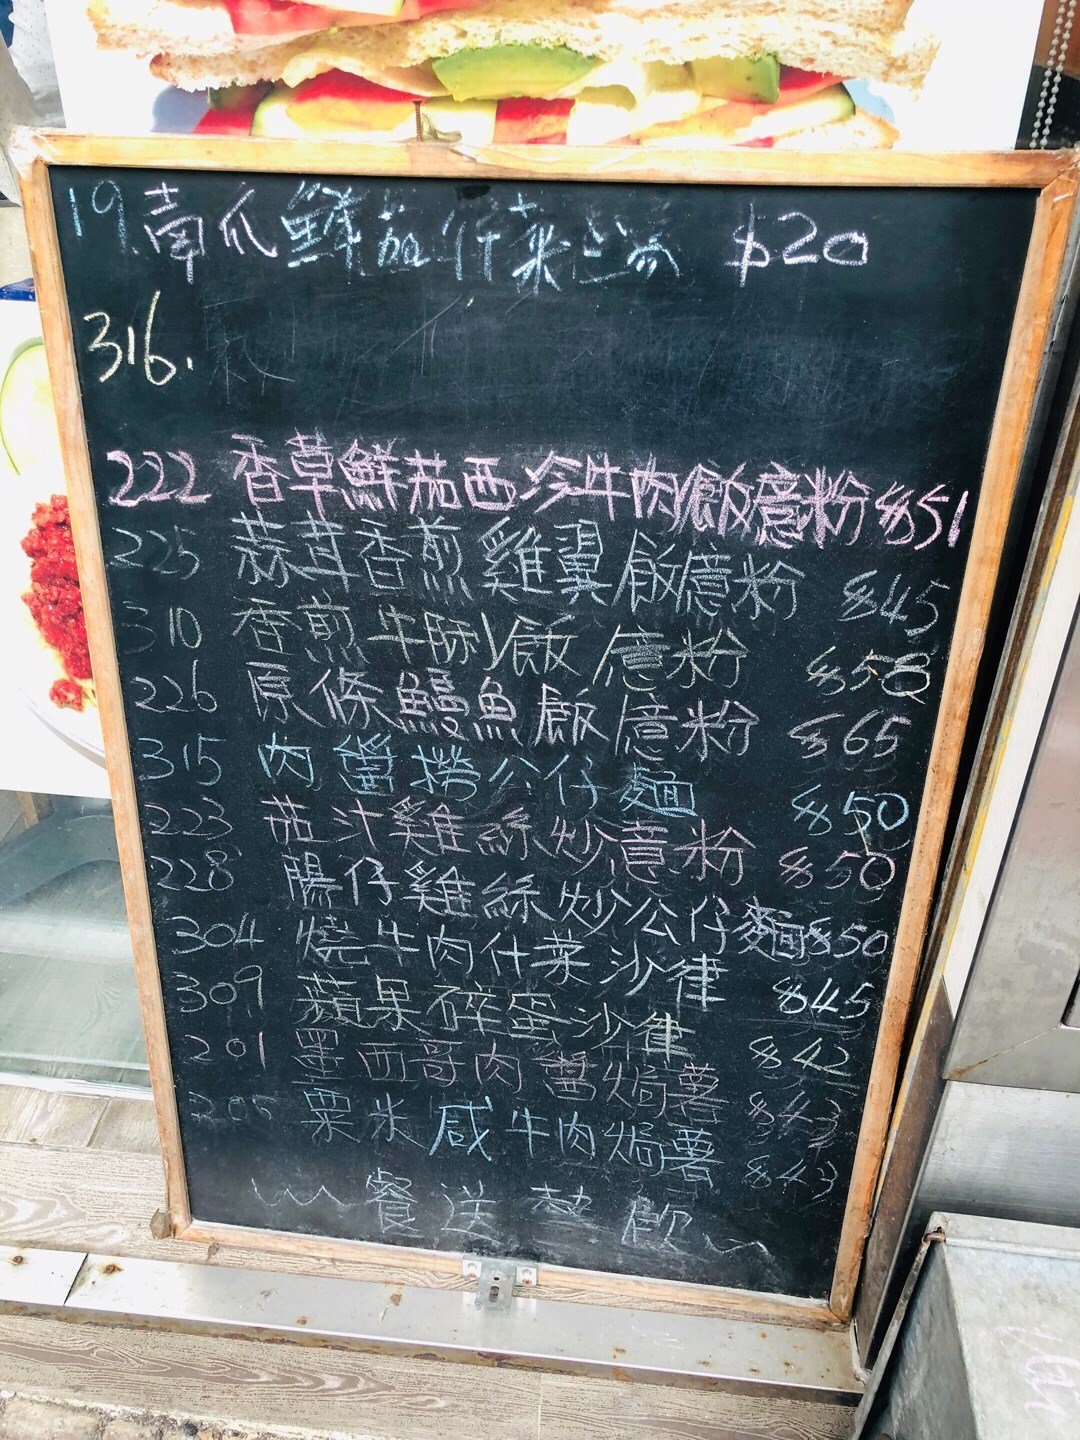 19. 南瓜鮮茄什菜湯 $20
316.
222 香草鮮茄西冷牛肉飯意粉 $51
225 蒜茸香煎雞翼飯意粉 $45
310 香煎牛脷飯意粉 $58
226 原條鰻魚飯意粉 $65
315 肉醬撈公仔麵 $50
223 茄汁雞絲炒意粉 $50
228 腸仔雞絲炒公仔麵 $50
304 燒牛肉什菜沙律 $45
309 蘋果碎蛋沙律 $42
201 墨西哥肉醬焗薯 $43
305 粟米咸牛肉焗薯 $43
~餐送熱飲~